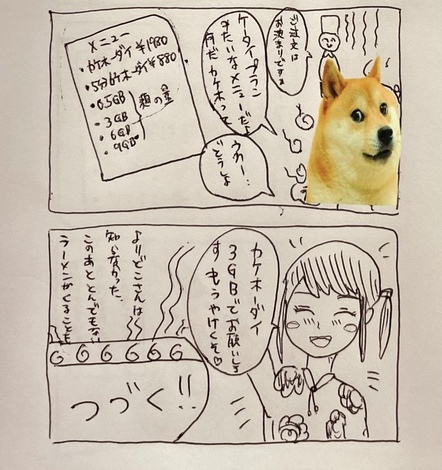 ご注文は
お決まりですか
ケータイプラン
みたいなメニューだな
何だカケホって
うわー…
どうしよ
メニュー
・カケホーダイ ¥1980
・5分カケホーダイ ¥880
・0.5GB
・3GB
・6GB
・9GB
麺の量
カケホーダイ
3GBでお願いしま
す もうやけくそ♡
よりどこさんは
知らなかった、
このあととんでもない
ラーメンがくることを
つづく!!